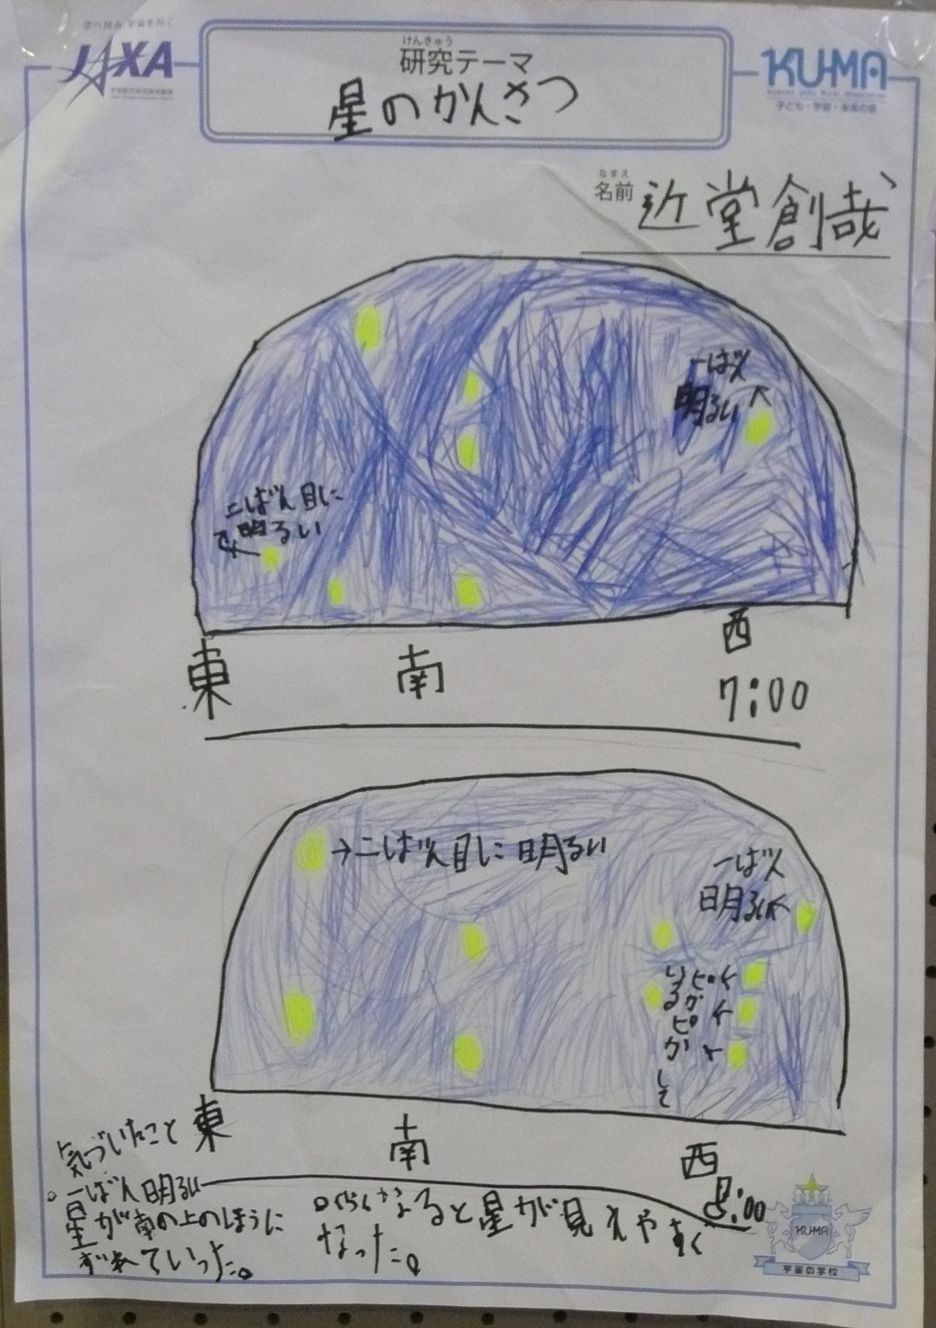 空へ挑み、宇宙を拓く
JAXA
けんきゅう
研究テーマ
星のかんさつ
KU-MA
子ども・宇宙・未来の会
なまえ
名前 近堂創哉
一ばん
明るい
二ばん目に
明るい
東 南 西
7:00
二ばん目に明るい
一ばん
明るい
ピカピカして
いる
東 南 西
8:00
気づいたこと
一ばん明るい
星が南の上のほうに
ずれていった。
くらくなると星が見えやすく
なった。
KU-MA
宇宙の学校